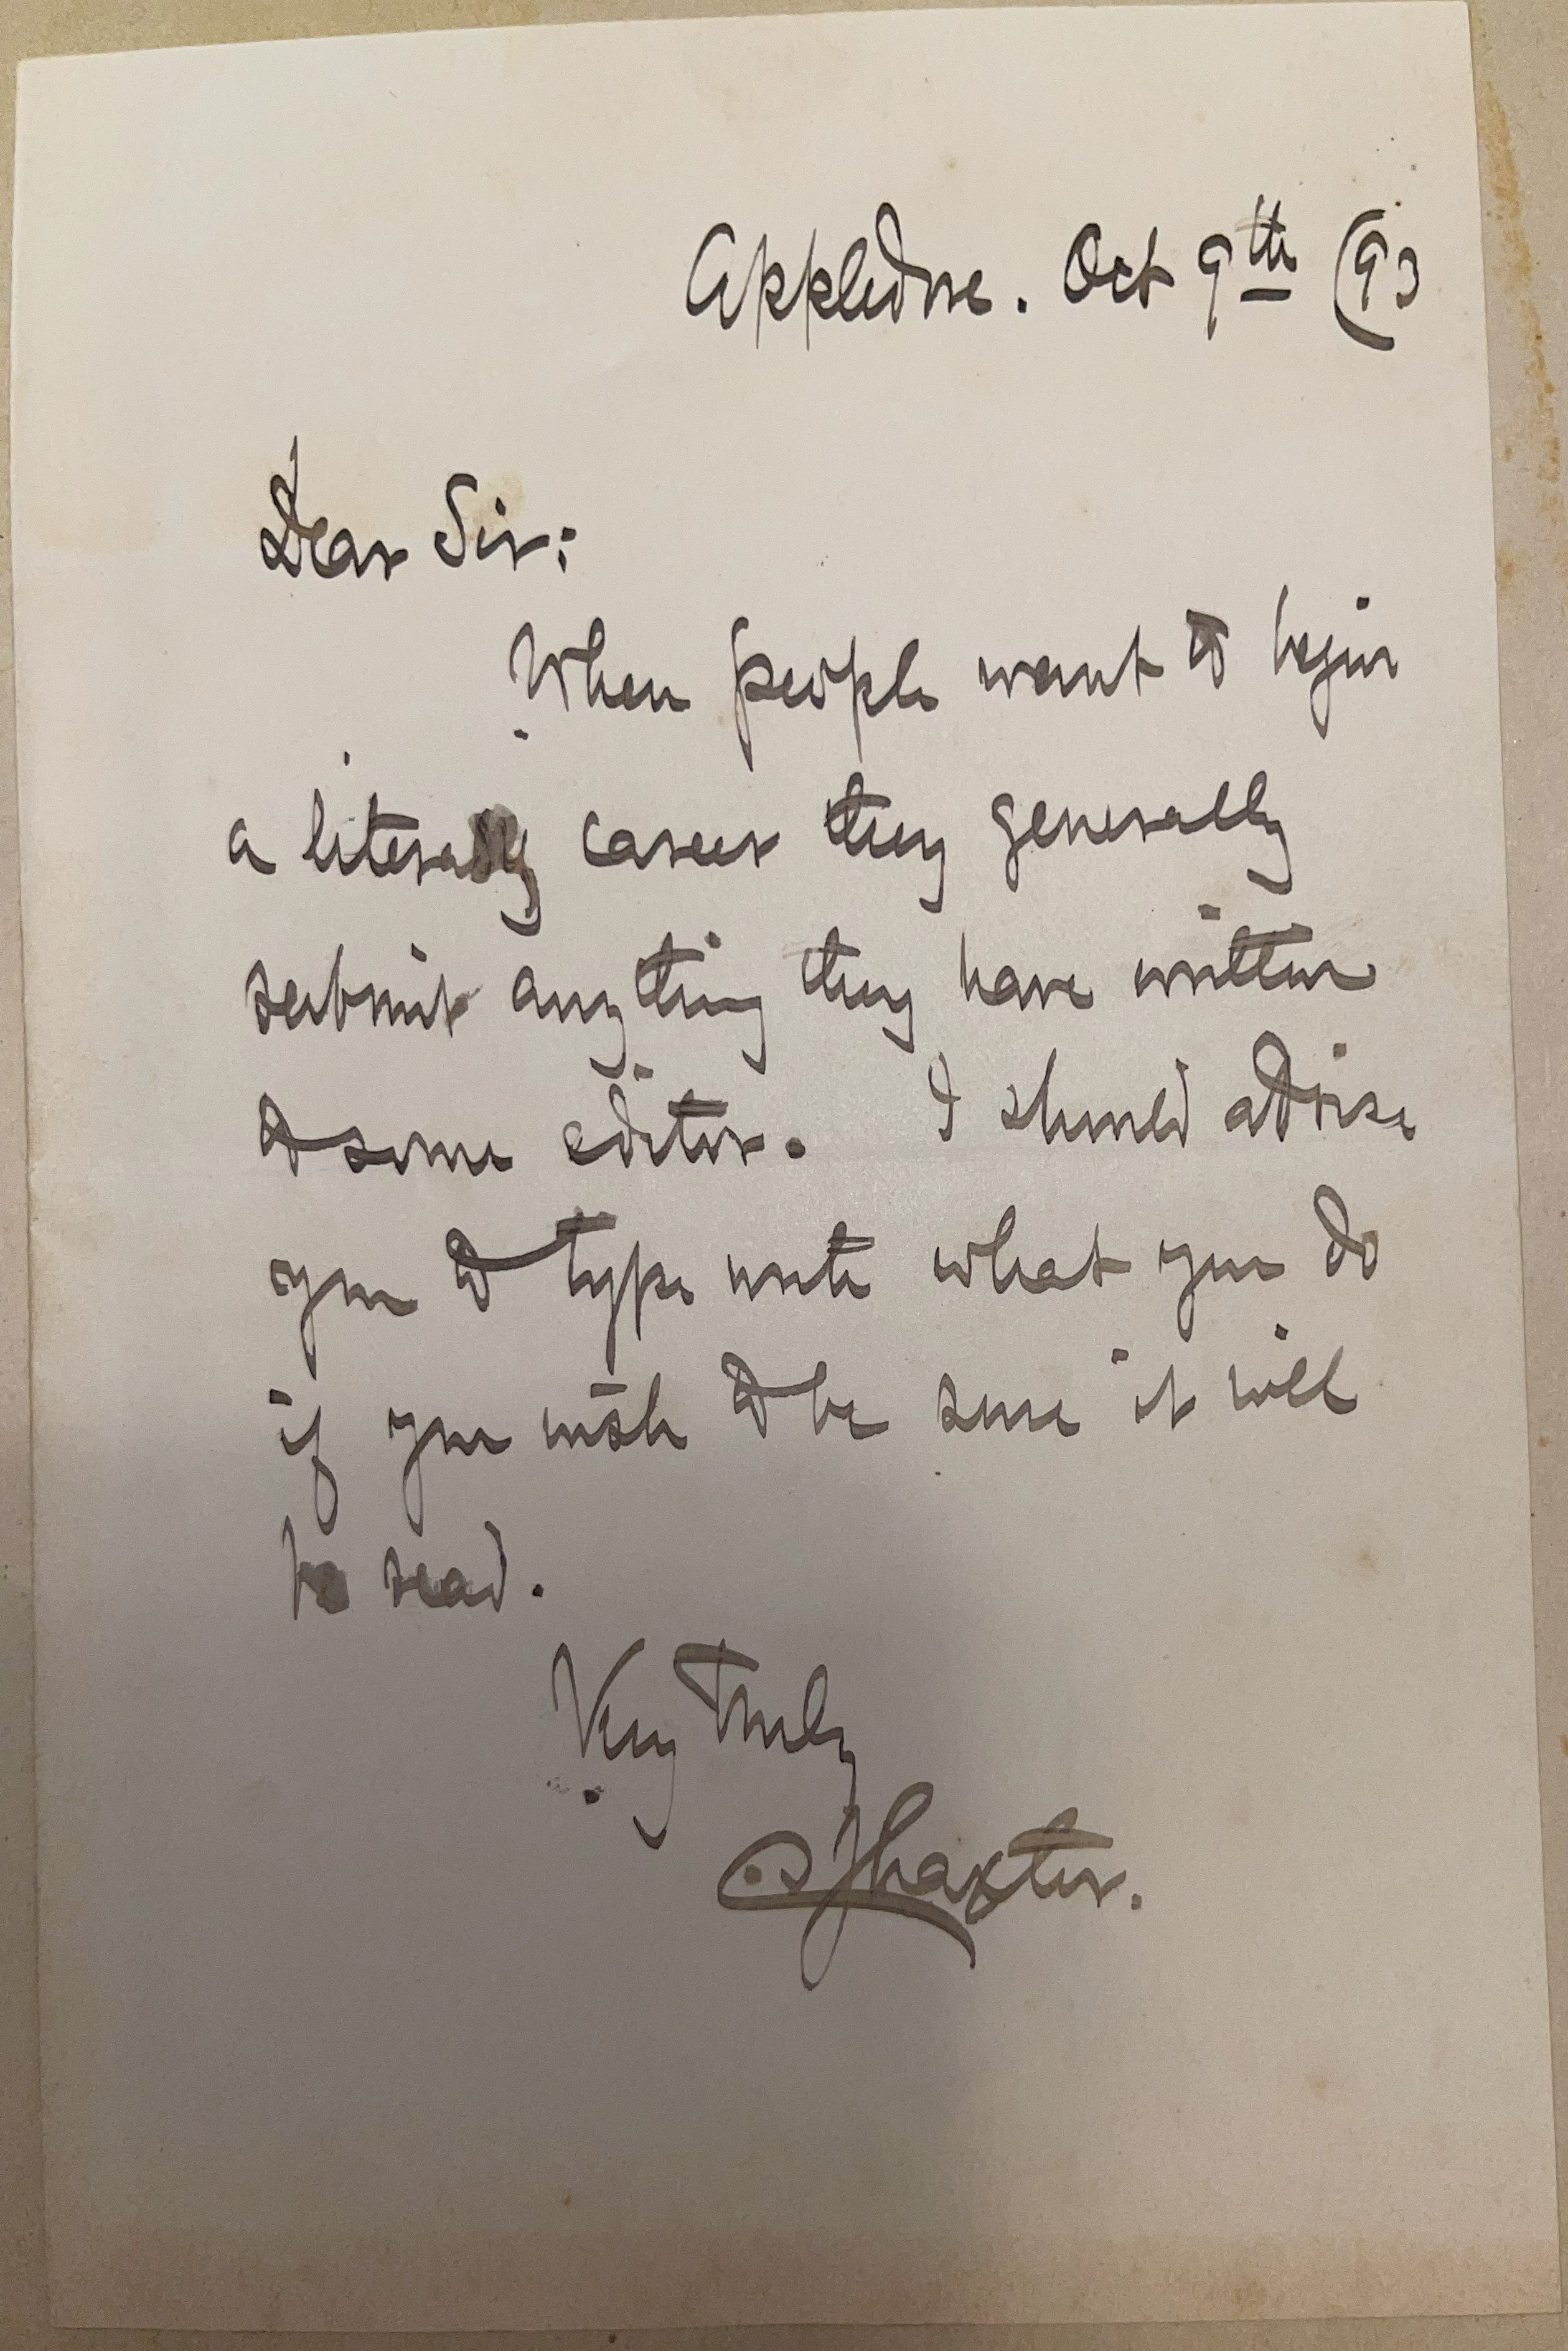 Appledore. Oct 9th (93
Dear Sir:
When people want to begin
a literary career they generally
submit anything they have written
to some editor. I should advise
you to type write what you do
if you wish to be sure it will
be read.
Very truly
C Thaxter.